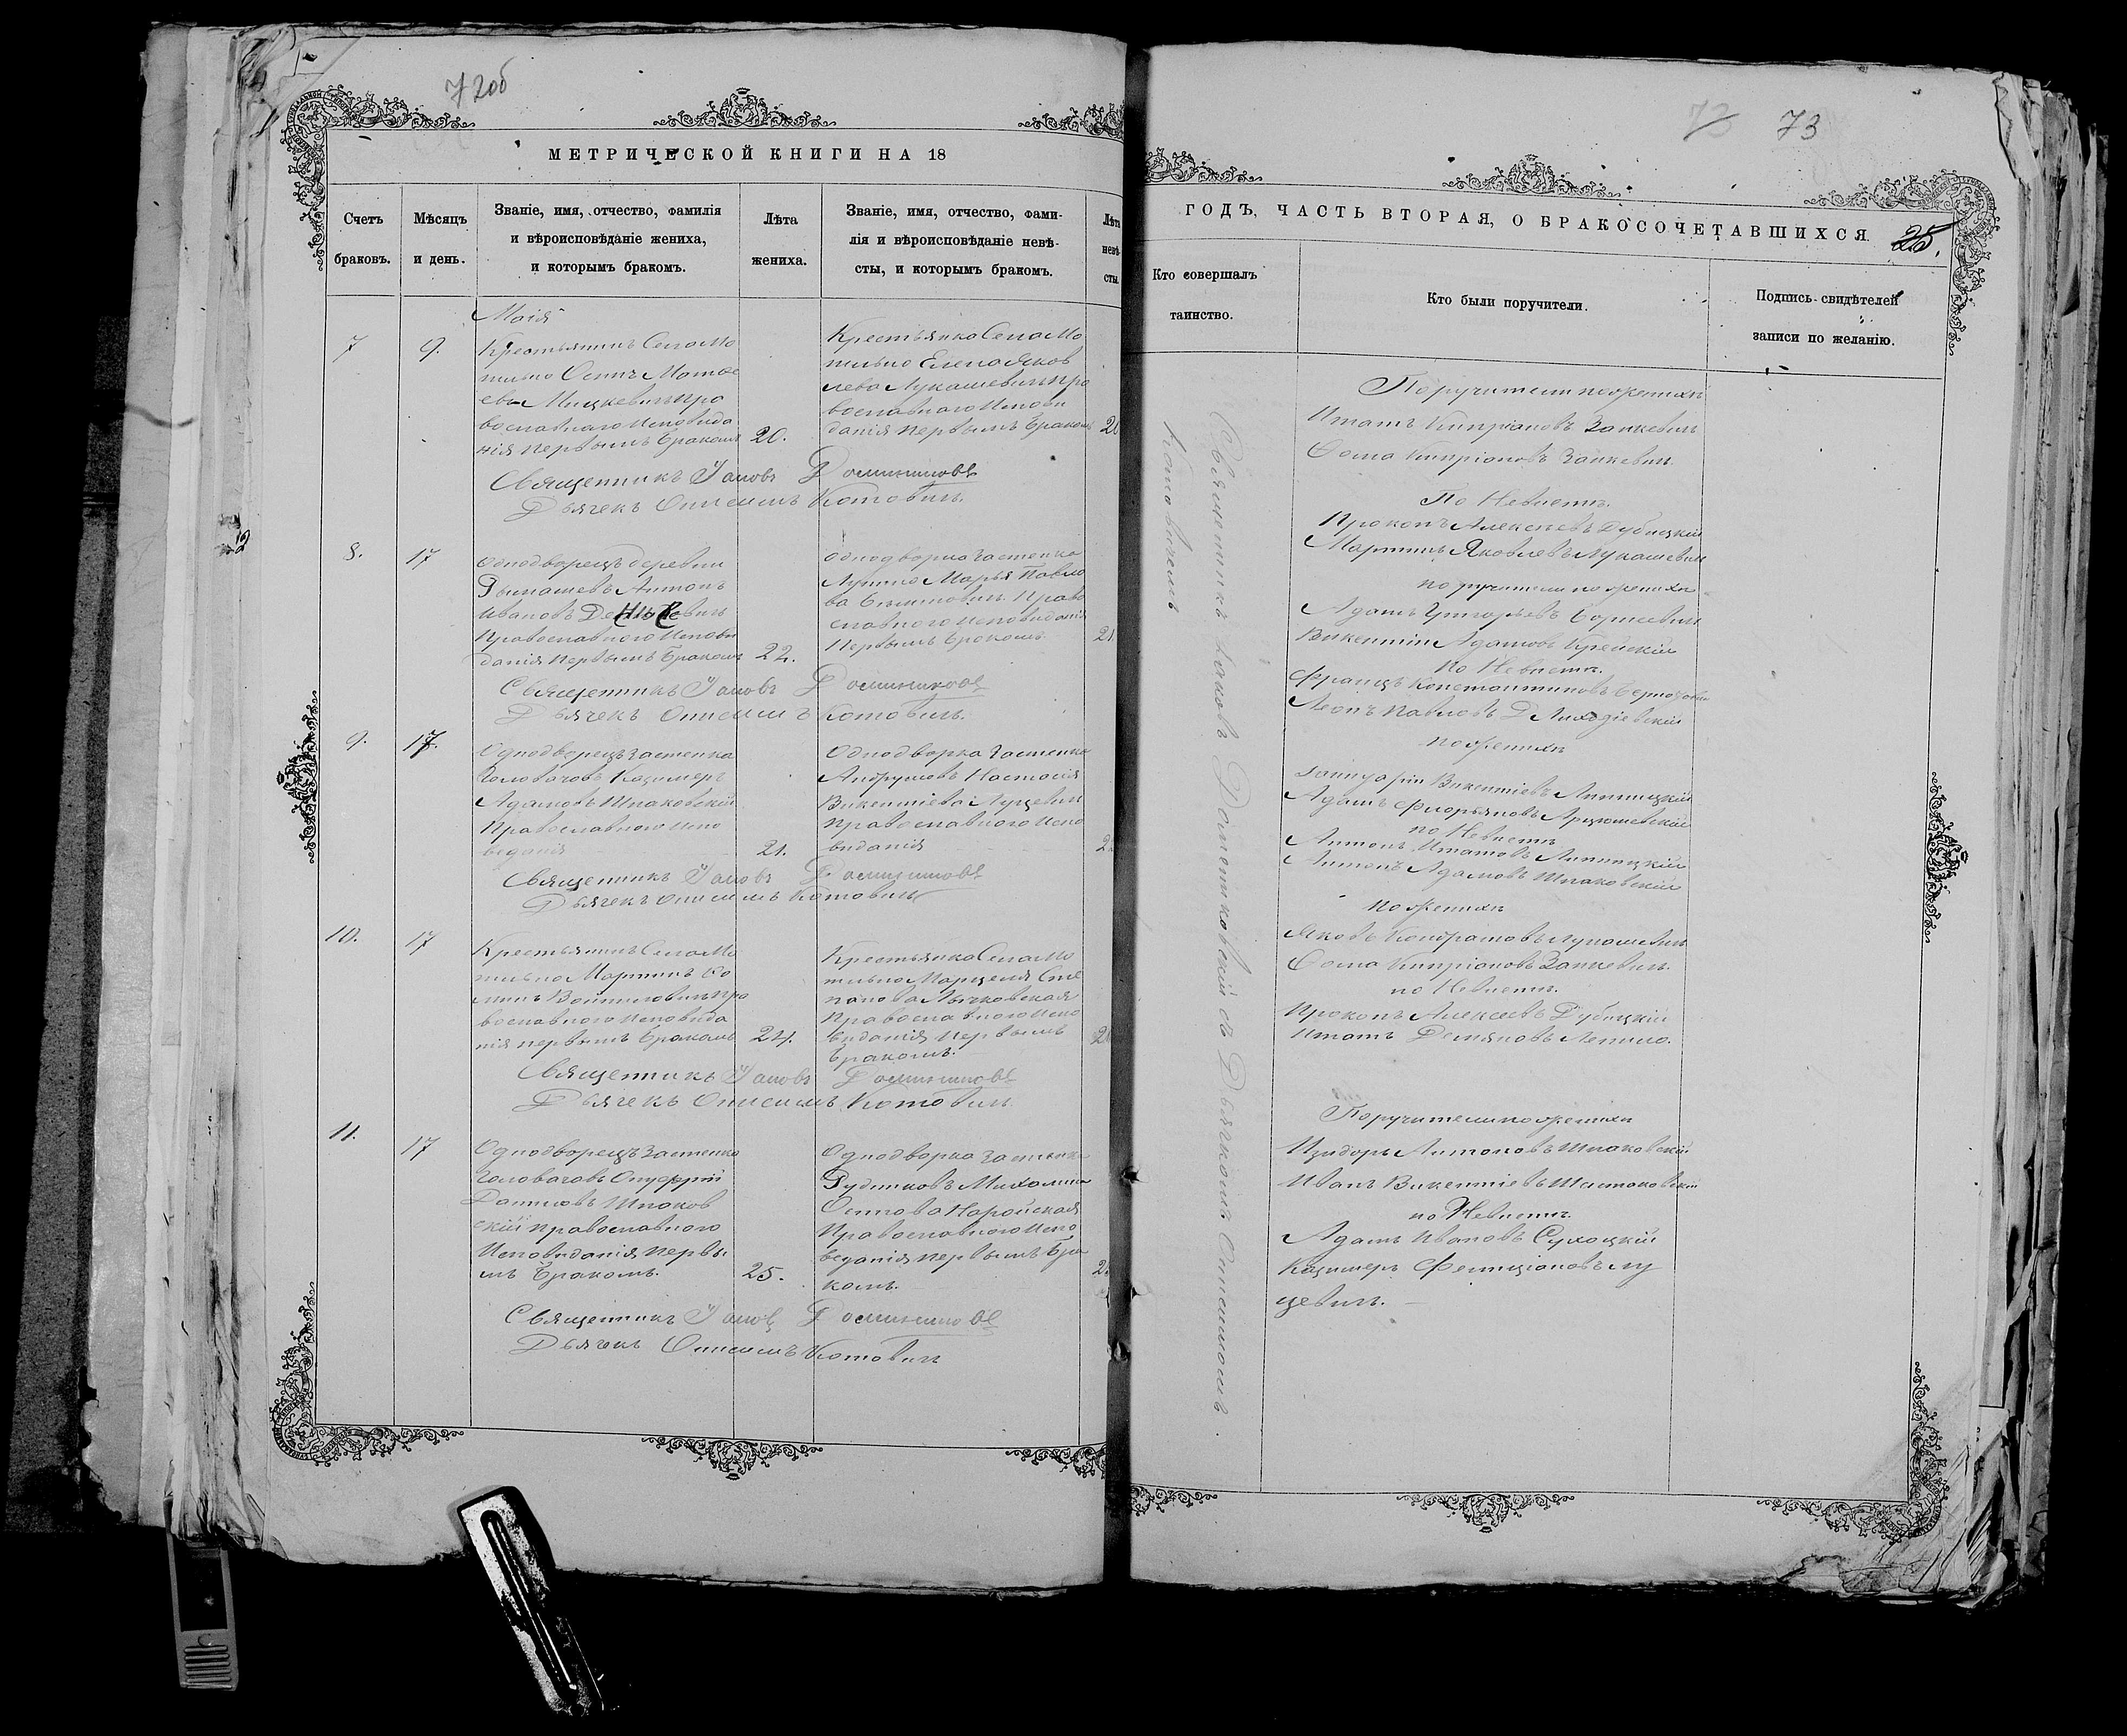 72об
МЕТРИЧЕСКОЙ КНИГИ НА 18
Счетъ браковъ.
Мѣсяцъ и день.
Званіе, имя, отчество, фамилія
и вѣроисповѣданіе жениха,
и которымъ бракомъ.
Лѣта
жениха.
Званіе, имя, отчество, фами-
лія и вѣроисповѣданіе невѣ-
сты, и которымъ бракомъ.
Лѣта
невѣ-
сты.
Маія
7
9.
Крестьянинъ Села Мо
тыльно Осипъ Матве
евъ Мицкевичъ Пра
вославнаго Исповѣда
нія первымъ бракомъ
20.
Крестьянка Села Мо
тыльно Елена Яков
лева Лукашевичъ Пра
вославнаго Исповѣ
данія первымъ бракомъ
Священникъ Іаковъ
Дьячекъ Онисимъ Котовичъ.
8.
17
Однодворецъ деревни
Антонъ
Ивановъ
Православнаго Исповѣ
данія первымъ бракомъ
22.
Однодворка застенка
Марья Павло
ва Прав
славнаго Исповѣданія
Первымъ бракомъ.
21
Священникъ Іаковъ
Дьячекъ Онисимъ Котовичъ.
9.
17.
Однодворецъ застенка
Головачовъ Казимеръ
Адамовъ Шпаковскій
Православнаго Испо
веданія
21.
Однодворка застенка
Настасія
Викентіева Луцевич
Православнаго Испо
виданія
Священникъ Іаковъ
Дьячекъ Онисимъ Котовичъ
10.
17
Крестьянинъ Села Мо
тыльно Мартинъ Ѳо
минъ Войниловичъ Пра
вославнаго Исповѣда
нія первымъ бракомъ
24.
Крестьянка Села Мо
тыльно Марцеля Сте
панова Лычковская
Православнаго Испо
виданія первымъ
бракомъ.
Священникъ Іаковъ
Дьячекъ Онисимъ Котовичъ
11.
17
Однодворецъ застенка
Головачовъ Онуфрій
Даниловъ Шпаков
скій Православнаго
Исповѣданія первы
мъ бракомъ.
25.
Однодворка застенка
Рудниковъ Михалина
Осипова Наройская
Православнаго Испо
веданія первымъ бра
комъ.
Священникъ Іаковъ
Дьячекъ Онисимъ Котовичъ
73
73
ГОДЪ, ЧАСТЬ ВТОРАЯ, О БРАКОСОЧЕТАВШИХСЯ
25.
Кто совершалъ
таинство.
Кто были поручители.
Подпись свидѣтелей
записи по желанію.
Священникъ Іаковъ съ Дьячкомъ Онисимомъ
Котовичемъ
Поручители по женихѣ
Игнатъ Кипріановъ Занкевичъ
Ѳома Кипріановъ Занкевич.
По Невестѣ.
Прокопъ Алексѣевъ Дубицкій
Мартинъ Яковлевъ Лукашевич
поручители по женихѣ
Адамъ Григорьевъ Борисевич
Викентій Адамовъ
по Невестѣ.
Францъ Константиновъ
Леонъ Павловъ
по женихѣ
Викентіевъ Липницкій
Адамъ Флорьяновъ
по Невестѣ
Антонъ Игнатовъ Липницкій
Антонъ Адамовъ Шпаковскій
по женихѣ
Яковъ Кондратовъ Лукашевич
Ѳома Кипріановъ Занкевич.
по Невестѣ.
Прокопъ Алексѣевъ Дубицкій
Игнатъ Демяновъ
Поручители по женихѣ
Изидоръ Антоновъ Шпаковскій
Иванъ Викентіевъ
по Невестѣ
Адамъ Ивановъ Сухоцкій
Казимеръ Фелиціановъ Лу
цевичъ.